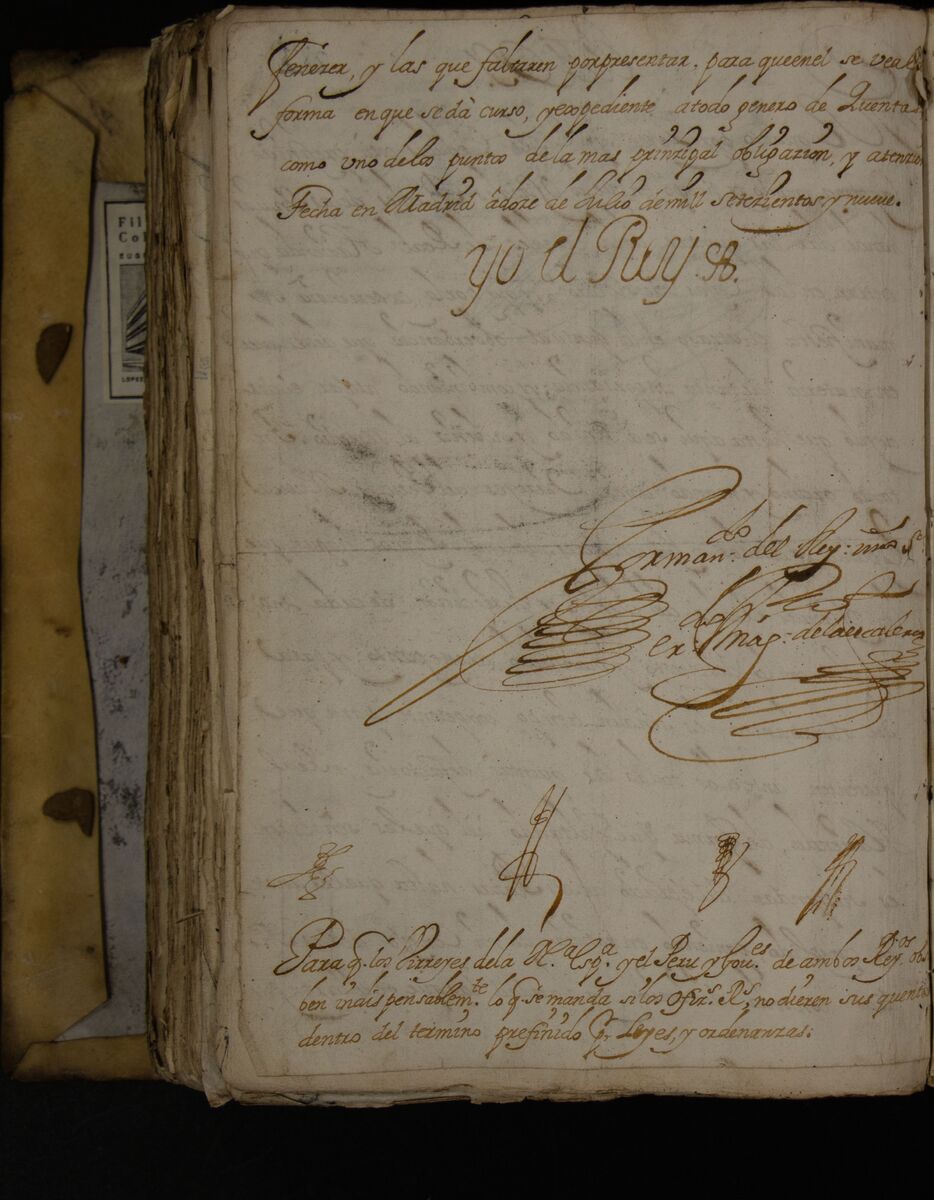 Fenezer, y las que faltaren por presentar. para queenel se vea la
forma enque seda curso, y expediente atodo genero de Quentas
como uno delos puntos dela mas prinzipal obligazion, y atenzion
Fecha en Madrid adoze de Julio demill setezientos y nueve.
yo el Rey
Por man.do del Rey nro S.r
dela escalera
Para q. los Virreyes dela N.a Esp.a y el Peru y Gou.es de ambos Rey.os obs
ben indispensablem.te lo q. se manda si los ofiz.s R.s no dieren sus quentas
dentro del termino prefinido p.r Leyes, y ordenanzas.
Fil
Col
EUGE
LOPEZ